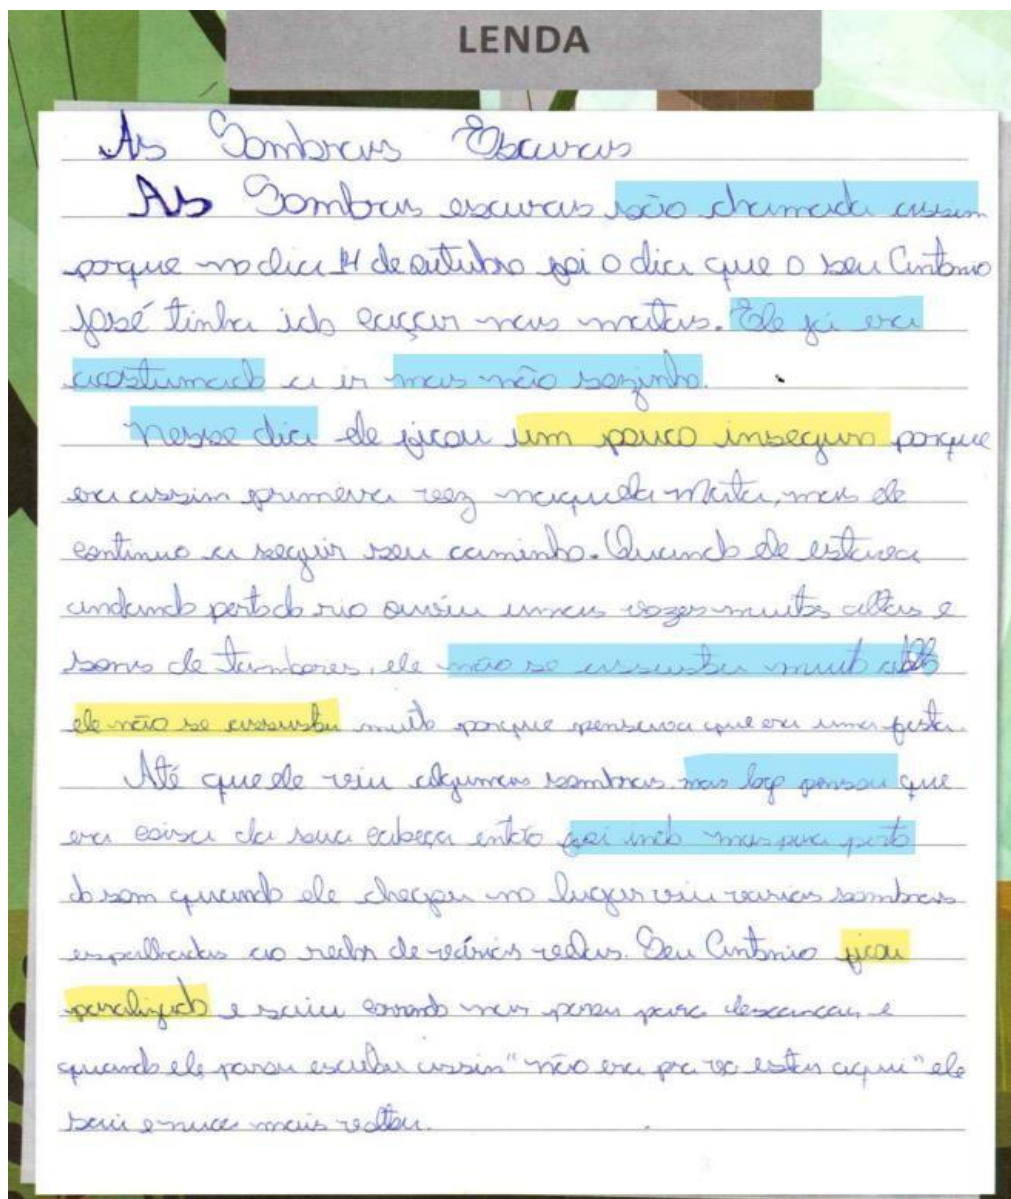 LENDA
As Sombras Escuras
As Sombras escuras são chamada assim
porque no dia 14 de outubro foi o dia que o seu Antonio
José tinha ido caçar nas matas. Ele já era
acostumado a ir mas não sozinho.
Nesse dia ele ficou um pouco inseguro porque
era assim primeira vez naquela mata, mas ele
continuo a seguir seu caminho. Quando ele estava
andando perto do rio ouviu umas vozes muitos altas e
sons de tambores, ele não se assustou muito
ele não se assustou muito porque pensava que era uma festa.
Até que ele viu algumas sombras, mas logo pensou que
era coisa da sua cabeça então foi indo mas para perto
do som quando ele chegou no lugar viu varias sombras
espalhadas ao redor de várias redes. Seu Antonio ficou
paralizado e saiu correndo mas parou para descancar e
quando ele parou escutou assim "não era pra vo estar aqui" ele
sai e nuca mais voltou.